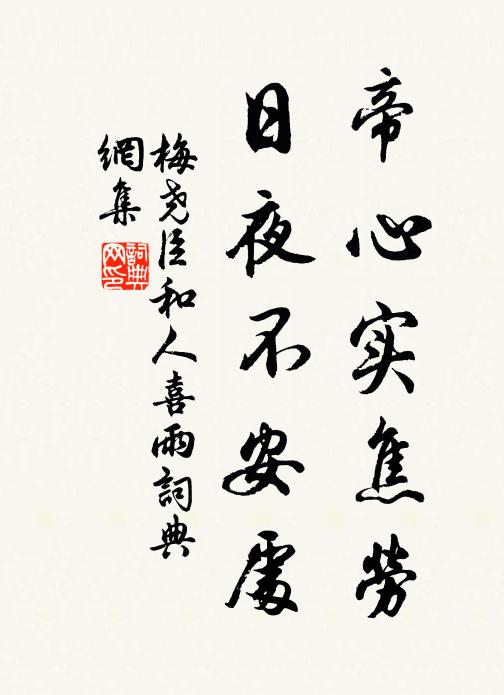 帝心实焦劳
日夜不安處
梅尧臣和人喜雨詞典
網集
詞典
网印